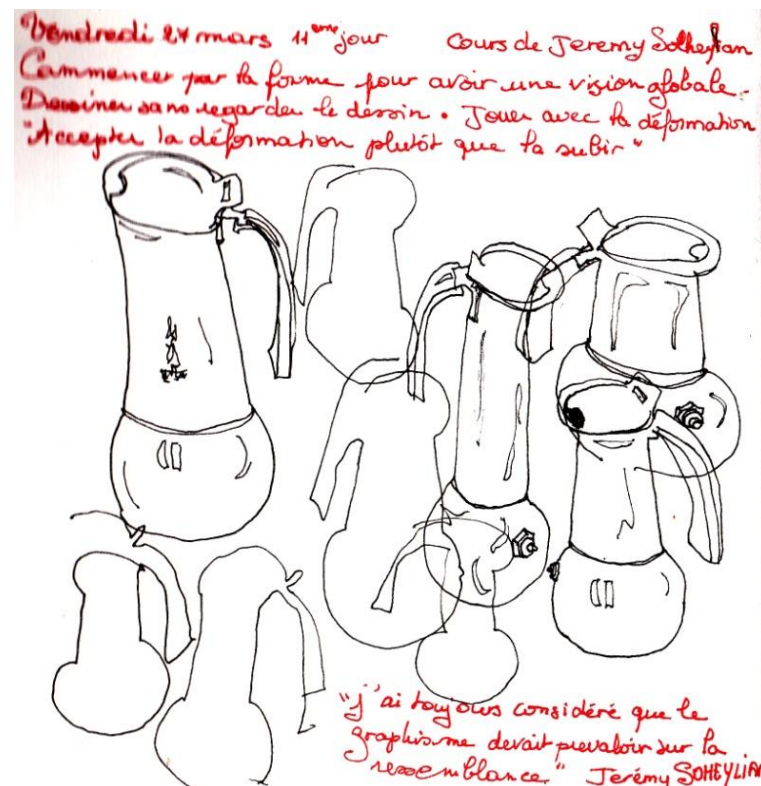 Vendredi 27 mars 11eme jour Cours de Jeremy Soheylian
Commencer par la forme pour avoir une vision globale.
Dessiner sans regarder le dessin. Jouer avec la déformation
"Accepter la déformation plutôt que la subir"
"j'ai toujours considéré que le
graphisme devait prevaloir sur la
ressemblance" Jerémy SOHEYLIAN